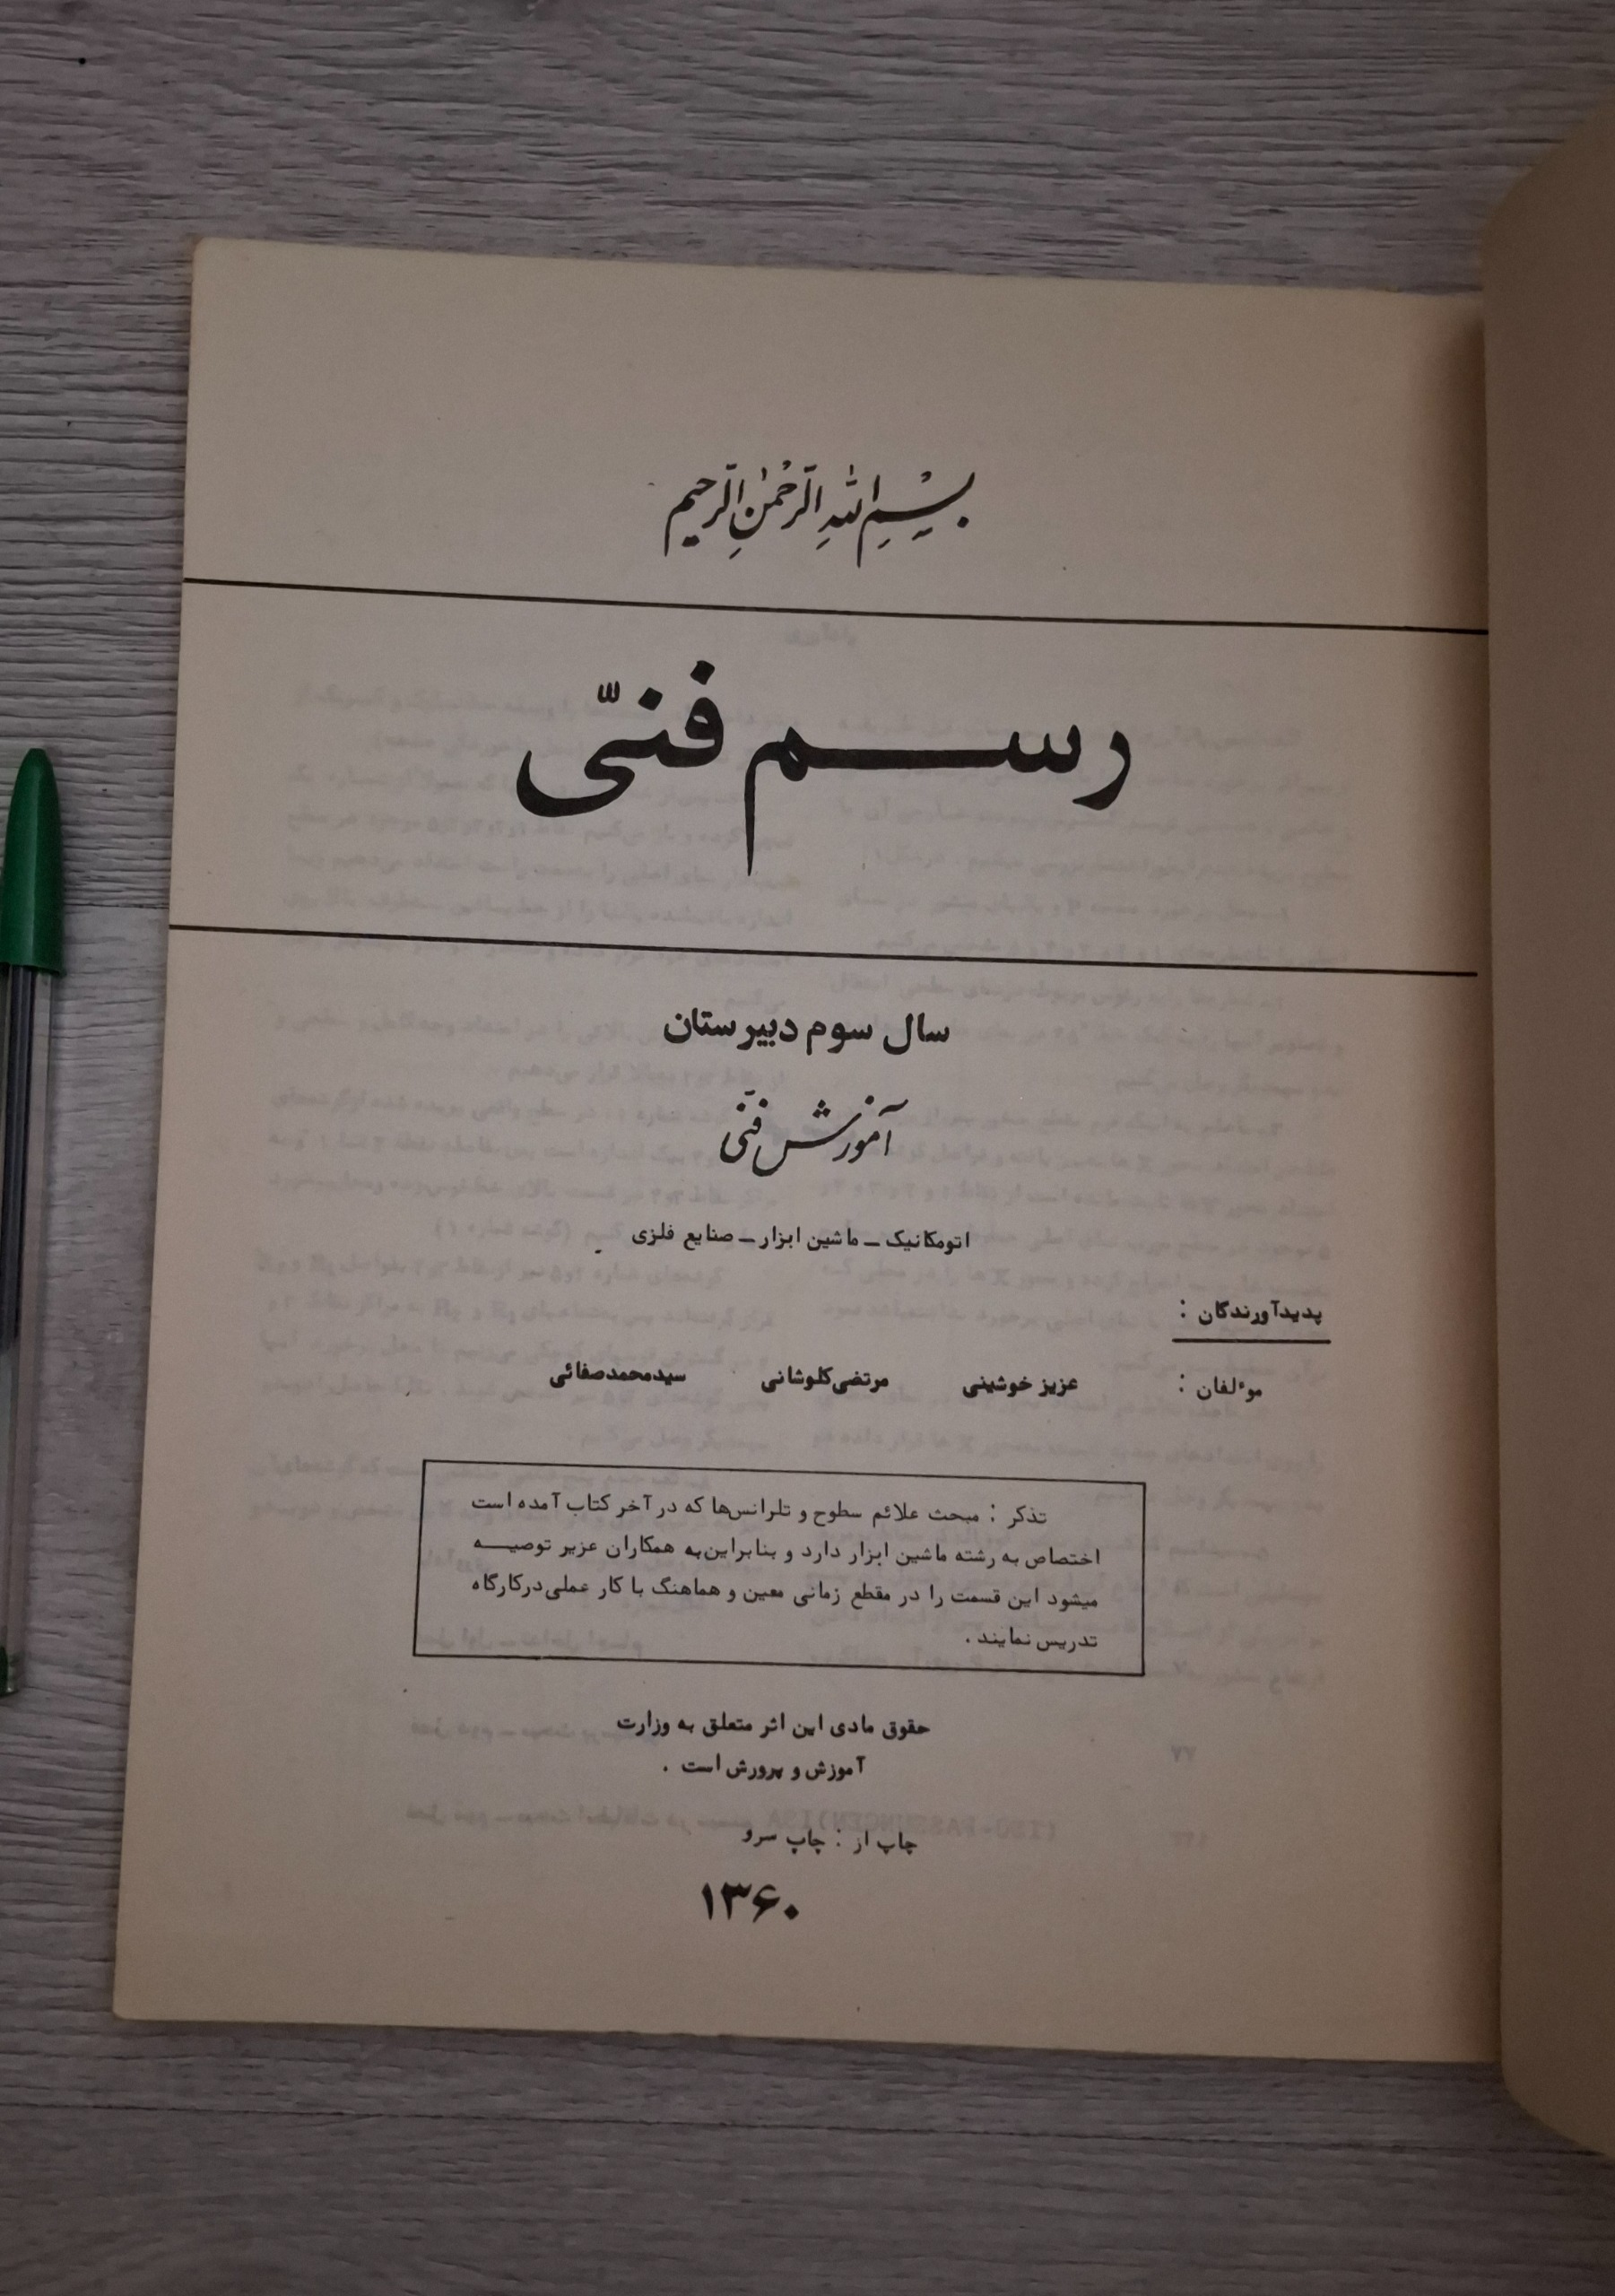 بِسْمِ اللهِ الرَّحْمٰنِ الرَّحیم
رسم فنّی
سال سوم دبیرستان
آموزش فنّی
اتومکانیک ـ ماشین ابزار ـ صنایع فلزی
پدیدآورندگان :
موٴلفان : عزیز خوشینی مرتضی‌کلوشانی سیدمحمدصفائی
تذکر : مبحث علائم سطوح و تلرانس‌ها که در آخر کتاب آمده است
اختصاص به رشته ماشین ابزار دارد و بنابراین‌به همکاران عزیر توصیـــه
میشود این قسمت را در مقطع زمانی معین و هماهنگ با کار عملی‌درکارگاه
تدریس نمایند .
حقوق مادی این اثر متعلق به وزارت
آموزش و پرورش است .
چاپ از : چاپ سرو
۱۳۶۰